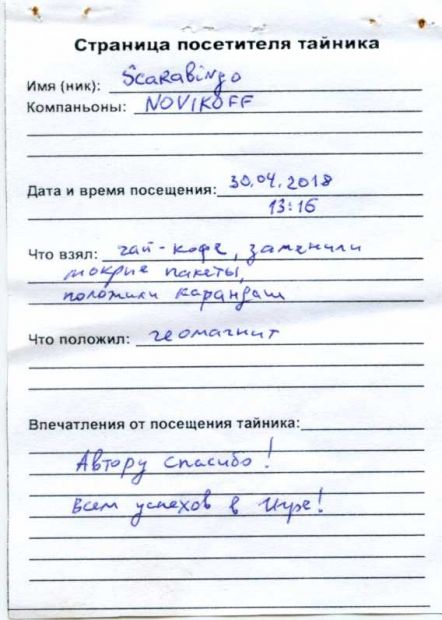 Страница посетителя тайника
Имя (ник): Scarabingo
Компаньоны: NOVIKOFF
Дата и время посещения: 30.04.2018
13:16
Что взял: чай-кофе, заменили
мокрие пакеты,
положили карандаш
Что положил: геомагнит
Впечатления от посещения тайника:
Автору спасибо!
Всем успехов в Игре!